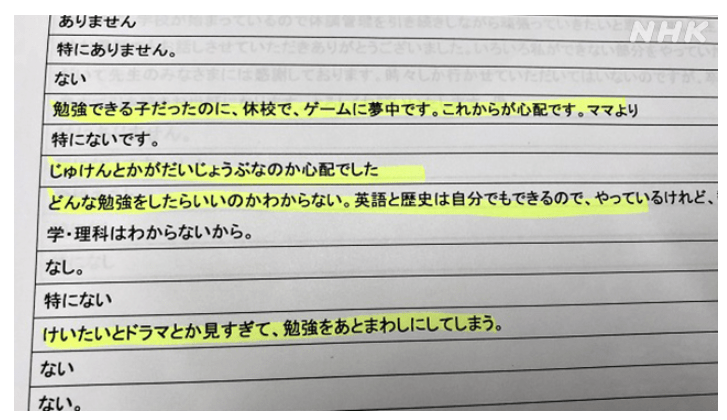 NHK
ありません
特にありません。
ない
勉強できる子だったのに、休校で、ゲームに夢中です。これからが心配です。ママより
特にないです。
じゅけんとかがだいじょうぶなのか心配でした
どんな勉強をしたらいいのかわからない。英語と歴史は自分でもできるので、やっているけれど、
学・理科はわからないから。
なし。
特にない
けいたいとドラマとか見すぎて、勉強をあとまわしにしてしまう。
ない
ない。